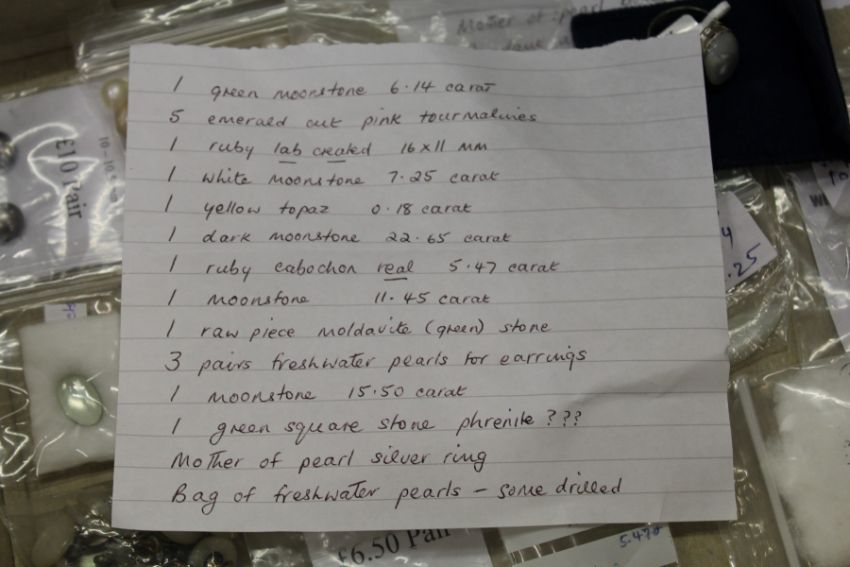 Mother of pearl
1 green moonstone 6.14 carat
5 emerald cut pink tourmalines
1 ruby lab created 16x11 mm
1 white moonstone 7.25 carat
1 yellow topaz 0.18 carat
1 dark moonstone 22.65 carat
1 ruby cabochon real 5.47 carat
1 moonstone 11.45 carat
1 raw piece moldavite (green) stone
3 pairs freshwater pearls for earrings
1 moonstone 15.50 carat
1 green square stone phrenite ???
Mother of pearl silver ring
Bag of freshwater pearls - some drilled
£10 Pair
.25
£6.50 Pair
5.470